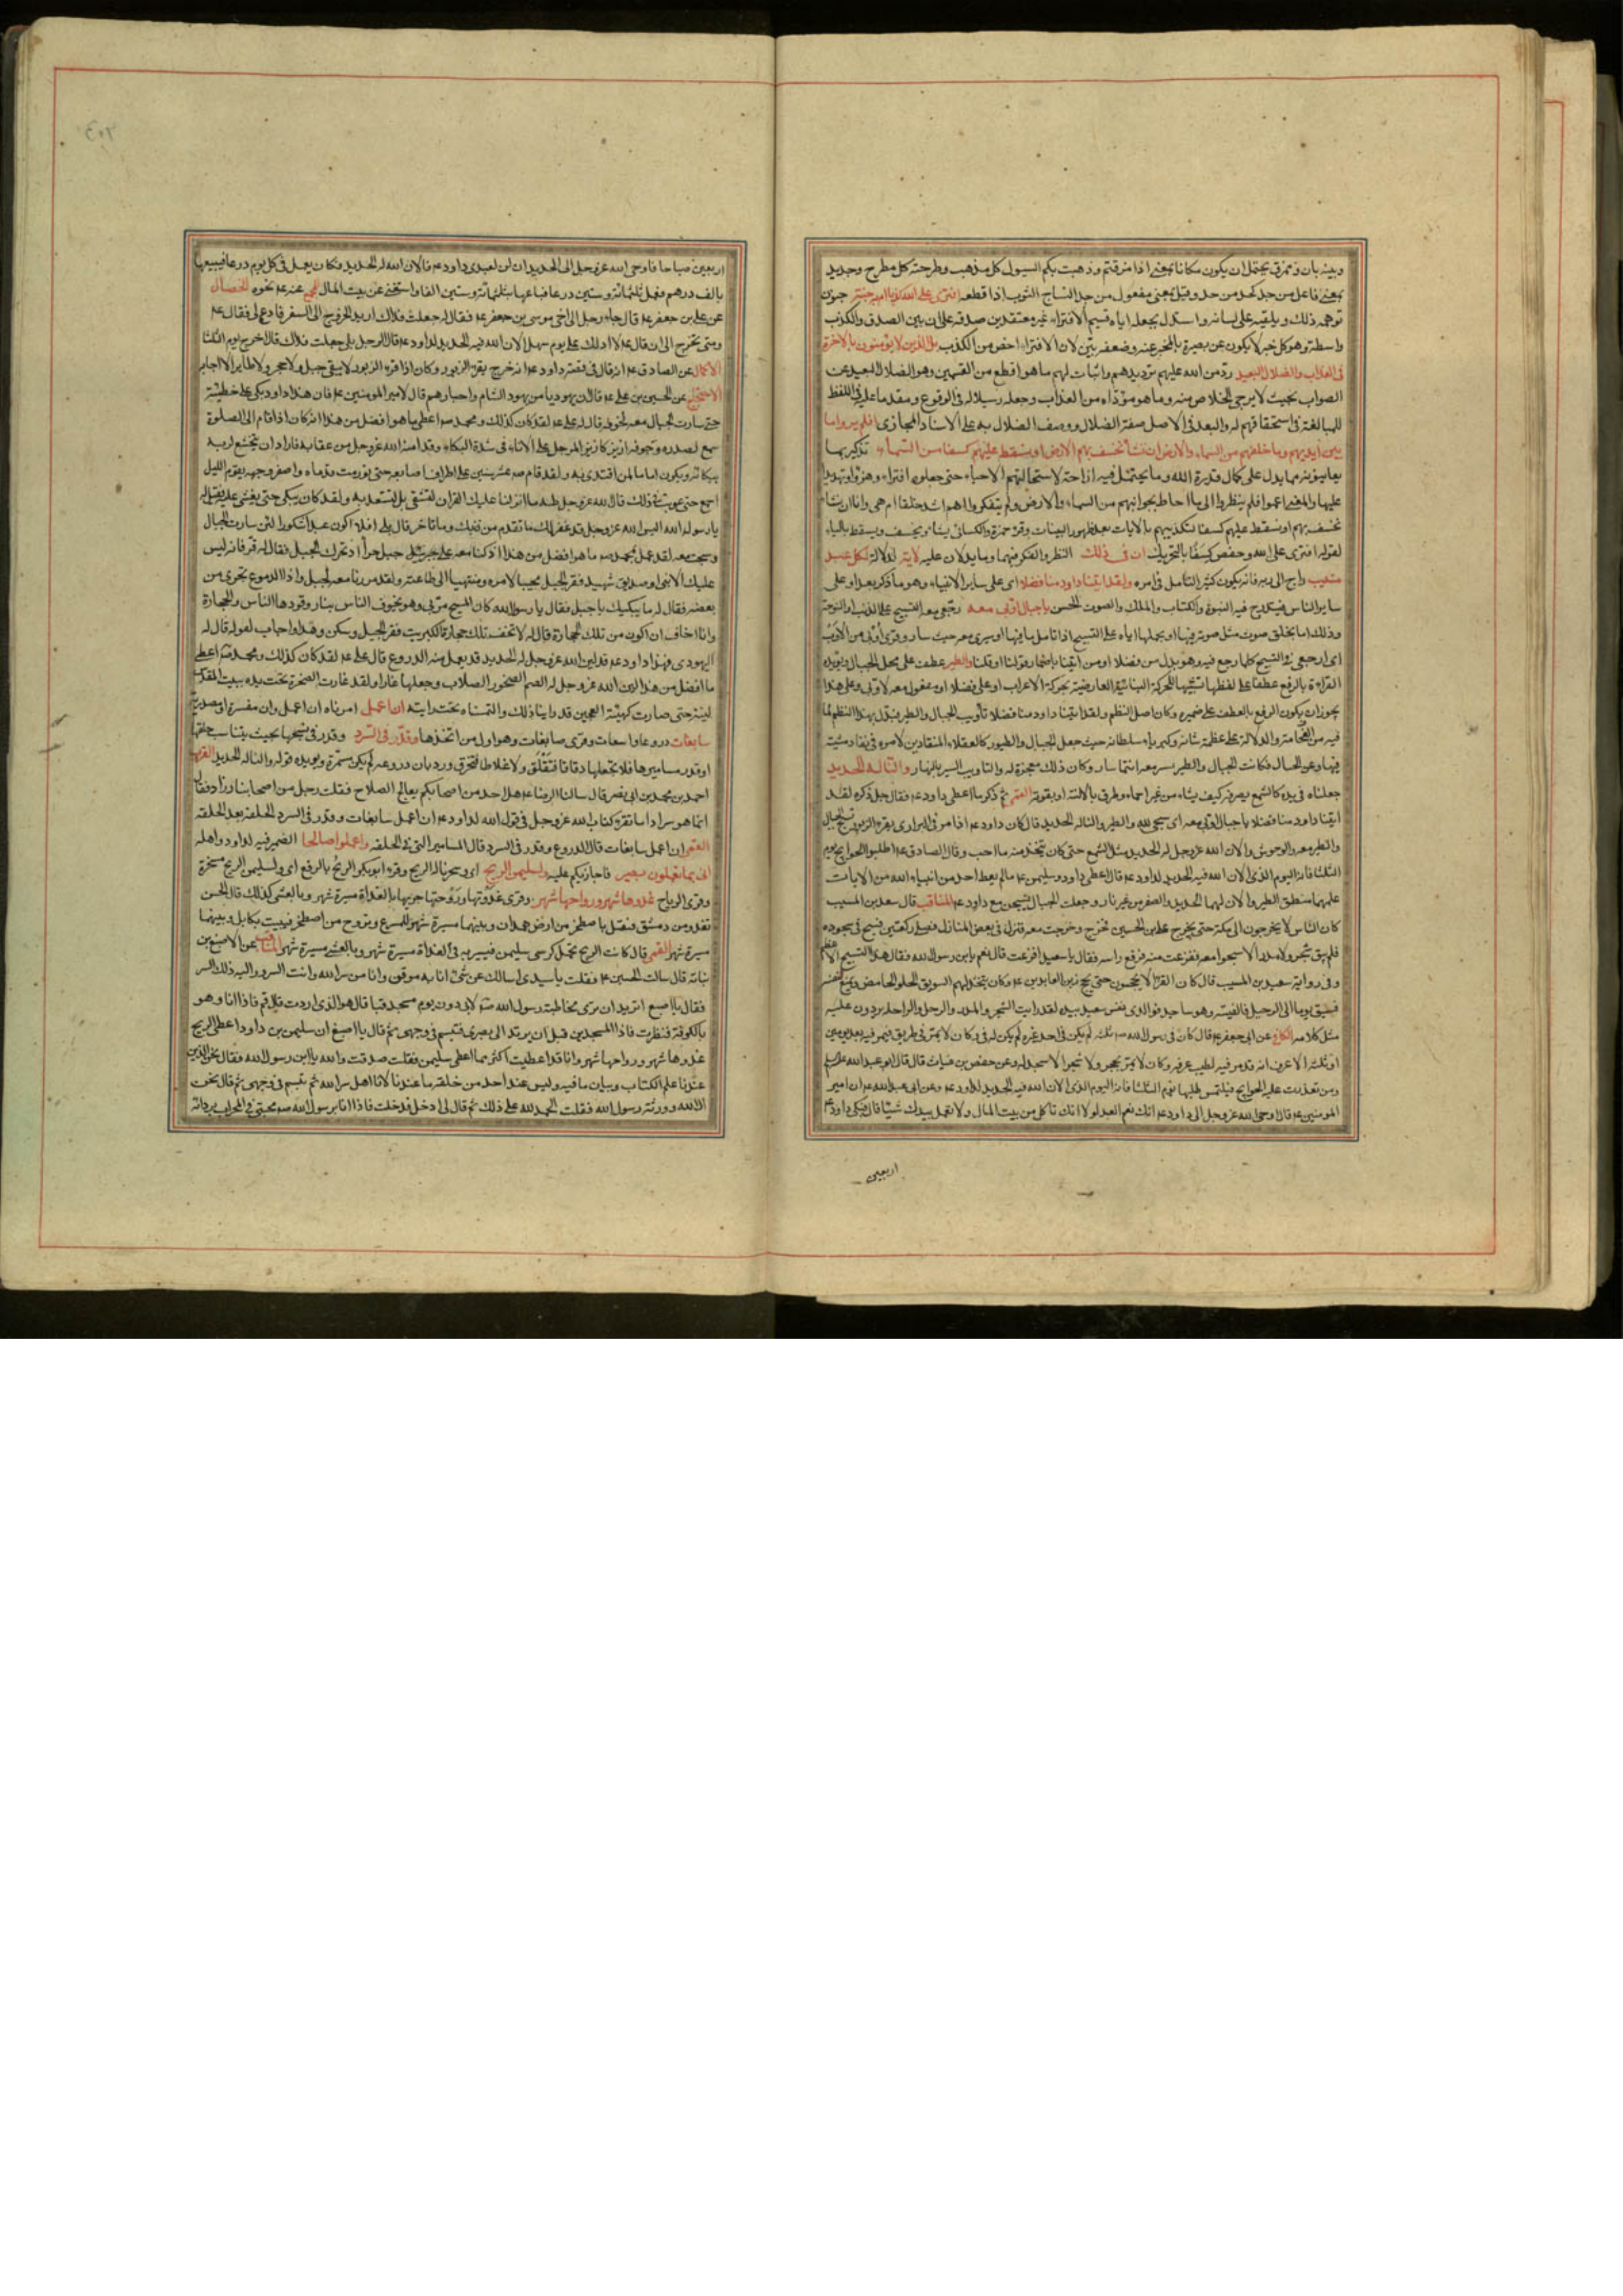 وبينه بان وممزق يحتمل ان يكون مكانا بمعنى اذا مزقتم وذهبت بكم السيول كل مذهب وطرحته كل مطرح وجديد
بمعنى فاعل من جد كحد من حد وقيل بمعنى مفعول من جد النساج الثوب اذا قطعه افترى على الله كذبا ام به جنة جنون
توهمه ذلك ويلقيه على لسانه واستدل بجعله اياه قسيم الافتراء غير معتقدين صدقه على ان بين الصدق والكذب
واسطة وهو كل خبر لا يكون عن بصيرة بالمخبر عنه وضعفه بين لان الافتراء اخص من الكذب بل الذين لا يؤمنون بالاخرة
فى العذاب والضلال البعيد رد من الله عليهم ترديدهم واثبات لهم ما هو افظع من القسمين وهو الضلال البعيد عن
الصواب بحيث لا يرجى الخلاص منه وما هو مؤداه من العذاب وجعله رسيلا له فى الوقوع ومقدما عليه فى اللفظ
للمبالغة فى استحقاقهم له والبعد فى الاصل صفة الضلال ووصف الضلال به على الاسناد المجازى افلم يروا ما
بين ايديهم وما خلفهم من السماء والارض ان نشأ نخسف بهم الارض او نسقط عليهم كسفا من السماء تذكير بما
يعاينونه مما يدل على كمال قدرة الله وما يحتمل فيه ازاحة لاستحالتهم الاحياء حتى جعلوه افتراء وهزؤا وتهديدا
عليها والمعنى اعموا فلم ينظروا الى ما احاط بجوانبهم من السماء والارض ولم يتفكروا اهم اشد خلقا ام هى وانا ان نشأ
نخسف بهم او نسقط عليهم كسفا لتكذيبهم بالايات بعد ظهور البينات وقرء حمزة والكسائى يشأ ويخسف ويسقط بالياء
لقوله افترى على الله وحفص كسفا بالتحريك ان فى ذلك النظر والفكر فيهما وما يدلان عليه لاية لدلالة لكل عبد
منيب راجع الى ربه فانه يكون كثير التامل فى امره ولقد اتينا داود منا فضلا اى على ساير الانبياء وهو ما ذكر بعد او على
ساير الناس فيندرج فيه النبوة والكتاب والملك والصوت الحسن يا جبال اوبى معه رجعى معه التسبيح على الذنب او النوحة
وذلك اما بخلق صوت مثل صوته فيها او بحملها اياه على التسبيح اذا تامل ما فيها او سيرى معه حيث سار وقرئ اوبى من الاوب
اى ارجعى فى التسبيح كلما رجع فيه وهو بدل من فضلا او من اتينا باضمار قولنا او قلنا والطير عطف على محل الجبال ويؤيده
القراءة بالرفع عطفا على لفظها تشبيها للحركة البنائية العارضة بحركة الاعراب او على فضلا او مفعول معه لاوبى وعلى هذا
يجوز ان يكون الرفع بالعطف على ضميره وكان اصل النظم ولقد اتينا داود منا فضلا تأويب الجبال والطير فبدل بهذا النظم لما
فيه من الفخامة والدلالة على عظمة شانه وكبرياء سلطانه حيث جعل الجبال والطيور كالعقلاء المنقادين لامره فى نفاذ مشيته
فيها وعن الحسال فكانت الجبال والطير يسير معه اينما سار وكان ذلك معجزة له والتاويب السير بالنهار والنا له الحديد
جعلناه فى يده كالشمع يصرفه كيف يشاء من غير احماء وطرق بالالنة او بقوته القمى ثم ذكر ما اعطى داود ع فقال جل ذكره لقد
اتينا داود منا فضلا يا جبال اوبى معه اى سبحى لله والطير والنا له الحديد قال كان داود ع اذا مر فى البرارى يقرء الزبور تسبح الجبال
والطير معه والوحوش والان الله عز وجل له الحديد مثل الشمع حتى كان يتخذ منه ما احب وقال الصادق ع اطلبوا الحوايج يوم
الثلثا فانه اليوم الذى الان الله فيه الحديد لداود ع قال اعطى داود وسليمن ع ما لم يعط احد من انبياء الله من الايات
علمهما منطق الطير والان لهما الحديد والصفر من غير نار وجعلت الجبال يسبحن مع داود ع المناقب قال سعيد بن المسيب
كان الناس لا يخرجون الى مكة حتى يخرج على بن الحسين فخرج وخرجت معه فنزل فى بعض المنازل فصلى ركعتين فسبح فى سجوده
فلم يبق شجر ولا مدر الا سبحوا معه ففزعت منه فرفع راسه فقال يا سعيد افزعت قال نعم يابن رسول الله فقال هذا التسبيح الاعظم
وفى رواية سعيد بن المسيب قال كان القراء لا يحجون حتى يحج زين العابدين ع وكان يتخذ لهم السويق الحلو والحامض ويمنع نفسه
فسبق يوما الى الرحل فالفيته وهو ساجد فوالذى نفس سعيد بيده لقد رايت الشجر والمدر والرحل والراحلة يردون عليه
مثل كلامه الكافى عن ابى جعفر ع قال كان فى رسول الله ص ثلثة لم يكن فى احد غيره لم يكن له فئ وكان لا يمر فى طريق فيمر فيه بعد يومين
او ثلثة الا عرف انه قد مر فيه لطيب عرفه وكان لا يمر بحجر ولا شجر الا سجد له وعن حفص بن غياث قال قال ابو عبد الله ع
ومن تعذرت عليه الحوايج فيلتمس طلبها يوم الثلثا فانه اليوم الذى الان الله فيه الحديد لداود ع وعن ابى عبد الله ع ان امير
المومنين ع قال اوحى الله عز وجل الى داود ع انك نعم العبد لولا انك تاكل من بيت المال ولا تعمل بيدك شيئا قال فبكى داود ع
اربعين
اربعين صباحا فاوحى الله عز وجل الى الحديد ان لن لعبدى داود ع فالان الله له الحديد فكان يعمل فى كل يوم درعا فيبيعها
بالف درهم فعمل ثلثمائة وستين درعا فباعها بثلثمائة وستين الفا واستغنى عن بيت المال عنه ع نحوه الخصال
عن على بن جعفر ع قال جاء رجل الى اخى موسى بن جعفر ع فقال له جعلت فداك اريد الخروج الى السفر فادع لى فقال ع
ومتى تخرج الى ان قال ع الا ادلك على يوم سهل الان الله فيه الحديد لداود ع قال الرجل بلى جعلت فداك قال اخرج يوم الثلثا
الاكمال عن الصادق ع انه قال فى قصة داود ع انه خرج يقرء الزبور وكان اذا قرء الزبور لا يبقى جبل ولا حجر ولا طاير الا اجابه
الاحتجاج عن الحسين بن على ع قال ان يهوديا من يهود الشام واحبارهم قال لامير المومنين ع فان هذا داود بكى على خطيئته
حتى سارت الجبال معه لخوفه قال له على ع لقد كان كذلك ومحمد ص اعطى ما هو افضل من هذا انه كان اذا قام الى الصلوة
سمع لصدره وجوفه ازيز كازيز المرجل على الاثافى من شدة البكاء وقد امنه الله عز وجل من عقابه فاراد ان يتخشع لربه
ببكائه ويكون اماما لمن اقتدى به ولقد قام ص عشر سنين على اطراف اصابعه حتى تورمت قدماه واصفر وجهه يقوم الليل
اجمع حتى عوتب فى ذلك قال الله عز وجل طه ما انزلنا عليك القران لتشقى بل لتسعد به ولقد كان يبكى حتى يغشى عليه فقيل له
يا رسول الله اليس الله عز وجل قد غفر لك ما تقدم من ذنبك وما تاخر قال بلى افلا اكون عبدا شكورا لئن سارت الجبال
وسبحت معه لقد عمل بمحمد ص ما هو افضل من هذا اذ كنا معه على جبل حرا اذ تحرك الجبل فقال له قر فانه ليس
عليك الا نبى او صديق شهيد فقر الجبل مجيبا لامره ومنتهيا الى طاعته ولقد مررنا معه بجبل واذا الدموع تجرى من
بعضه فقال له ما يبكيك يا جبل فقال يا رسول الله كان المسيح مر بى وهو يخوف الناس بنار وقودها الناس والحجارة
وانا اخاف ان اكون من تلك الحجارة قال له لا تخف تلك حجارة الكبريت فقر الجبل وسكن وهدا واجاب لقوله قال له
اليهودى فهذا داود ع قد لين الله عز وجل له الحديد قد يعمل منه الدروع قال على ع لقد كان كذلك ومحمد ص اعطى
ما افضل من هذا لين الله عز وجل له الصم الصخور الصلاب وجعلها غارا ولقد غارت الصخرة تحت يده ببيت المقدس
لينة حتى صارت كهيئة العجين قد راينا ذلك والتمسناه تحت رايته ان اعمل امرناه ان اعمل وان مفسرة او مصدرية
سابغات دروعا واسعات وقرئ صابغات وهو اول من اتخذها وقدر فى السرد وقدر فى نسجها بحيث يتناسب حلقها
او قدر مساميرها فلا تجعلها دقاقا فتقلق ولا غلاظا فتخرق ورد بان دروعه لم يكن مسمرة ويؤيده قوله والنا له الحديد
احمد بن محمد بن ابى نصر قال سالنا الرضا ع هل احد من اصحابكم يعالج السلاح فقلت رجل من اصحابنا زراد فقال
انما هو سراد اما تقرء كتاب الله عز وجل فى قول الله لداود ع ان اعمل سابغات وقدر فى السرد الحلقة بعد الحلقة
القمى ان اعمل سابغات قال الدروع وقدر فى السرد قال المسامير التى فى الحلقة واعملوا صالحا الضمير فيه لداود واهله
انى بما تعملون بصير فاجازيكم عليه ولسليمن الريح اى وسخرنا له الريح وقرء ابو بكر الريح بالرفع اى ولسليمن الريح مسخرة
وقرئ الرياح غدوها شهر ورواحها شهر وقرئ غدوتها وروحتها جريها بالغداة مسيرة شهر وبالعشى كذلك قال الحسن
تغدو من دمشق فتقيل باصطخر من ارض اصفهان وبينهما مسيرة شهر للمسرع وتروح من اصطخر فتبيت بكابل وبينهما
مسيرة شهر القمى قال كانت الريح تحمل كرسى سليمن فيسير به فى الغداة مسيرة شهر وبالعشى مسيرة شهر المناقب عن الاصبغ بن
نباته قال سالت الحسين ع فقلت يا سيدى اسالك عن شئ انا به موقن وانا من سر الله وانت السر واليه ذلك السر
فقال يا اصبغ اتريد ان ترى مخاطبة رسول الله ص لابى دون يوم مسجد قبا قال هو الذى اردت قال قم فاذا انا وهو
بالكوفة فنظرت فاذا المسجد من قبل ان يرتد الى بصرى فتبسم فى وجهى ثم قال يا اصبغ ان سليمن بن داود اعطى الريح
غدوها شهر ورواحها شهر وانا قد اعطيت اكثر مما اعطى سليمن فقلت صدقت والله يا ابن رسول الله فقال نحن الذين
عندنا علم الكتاب وبيان ما فيه وليس عند احد من خلقه ما عندنا لانا اهل سر الله ثم تبسم فى وجهى ثم قال نحن
ال الله وورثة رسول الله فقلت الحمد لله على ذلك ثم قال لى ادخل فدخلت فاذا انا برسول الله ص محتبى فى المحراب بردائه